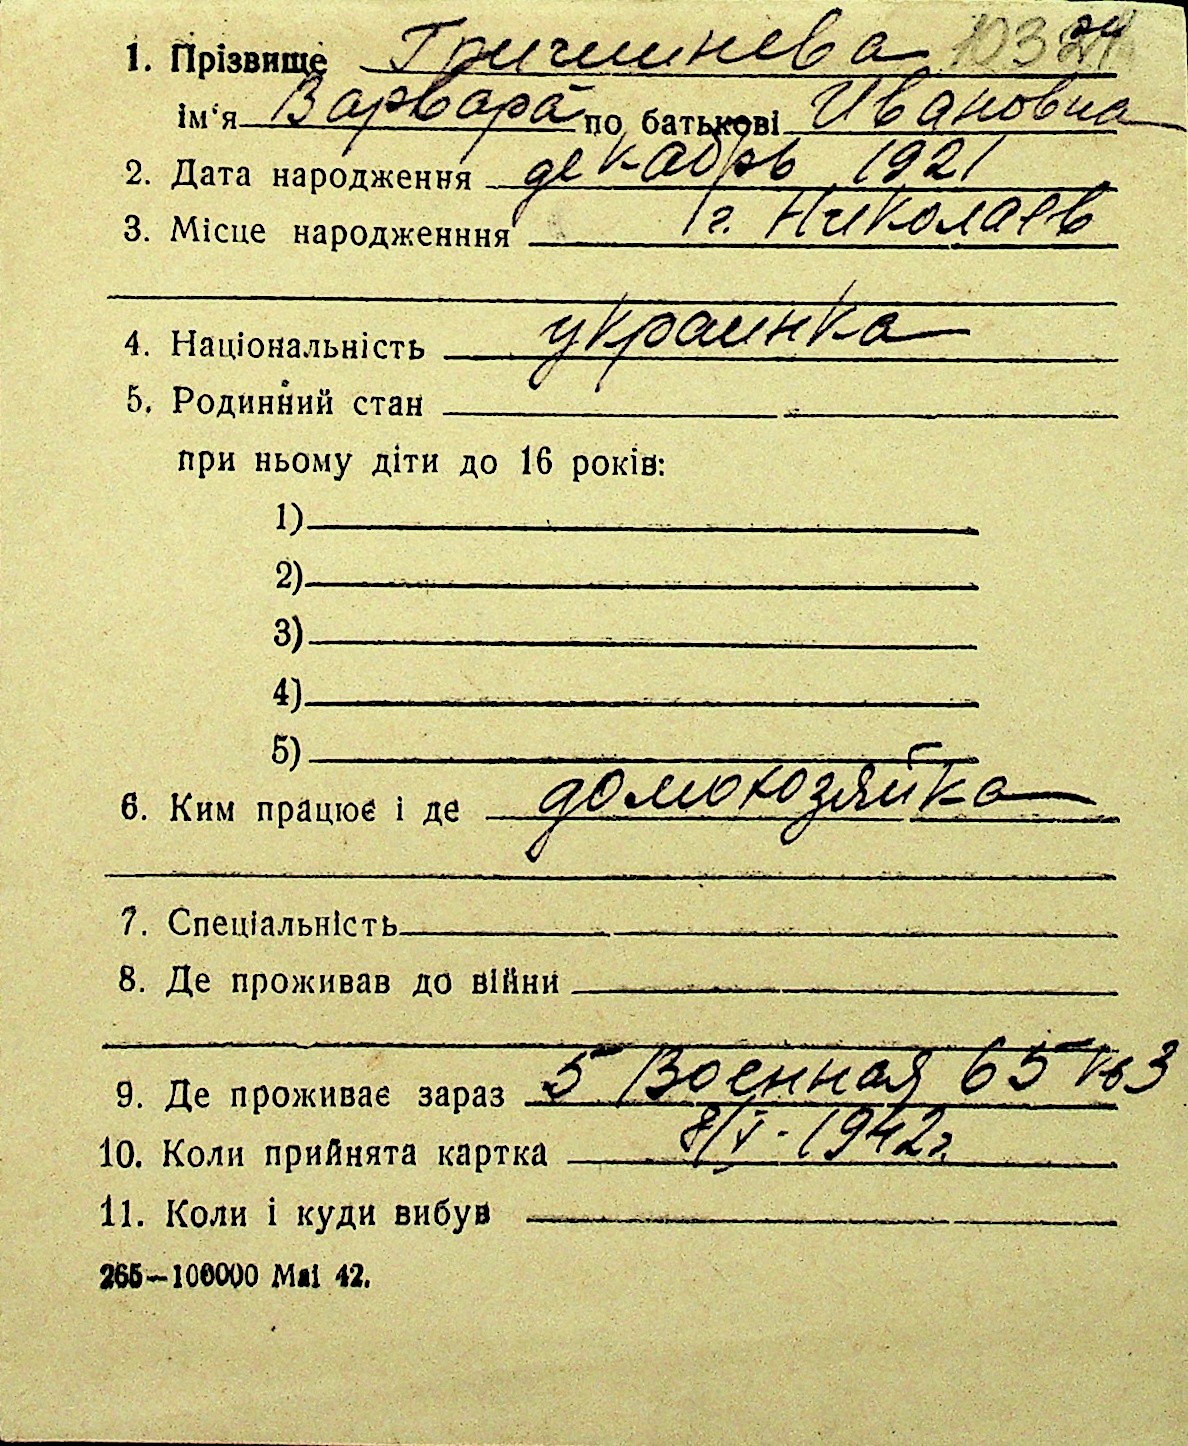 1. Прізвище Гричишнева
ім'я Варвара по батькові Ивановна
2. Дата народження декабрь 1921
3. Місце народженння г. Николаев
4. Національність украинка
5. Родинний стан
при ньому діти до 16 років:
1)
2)
3)
4)
5)
6. Ким працює і де домохозяйка
7. Спеціальність
8. Де проживав до війни
9. Де проживає зараз 5 Военная 65 кв 3
10. Коли прийнята картка 8/V-1942г.
11. Коли і куди вибув
265—100000 Маі 42.